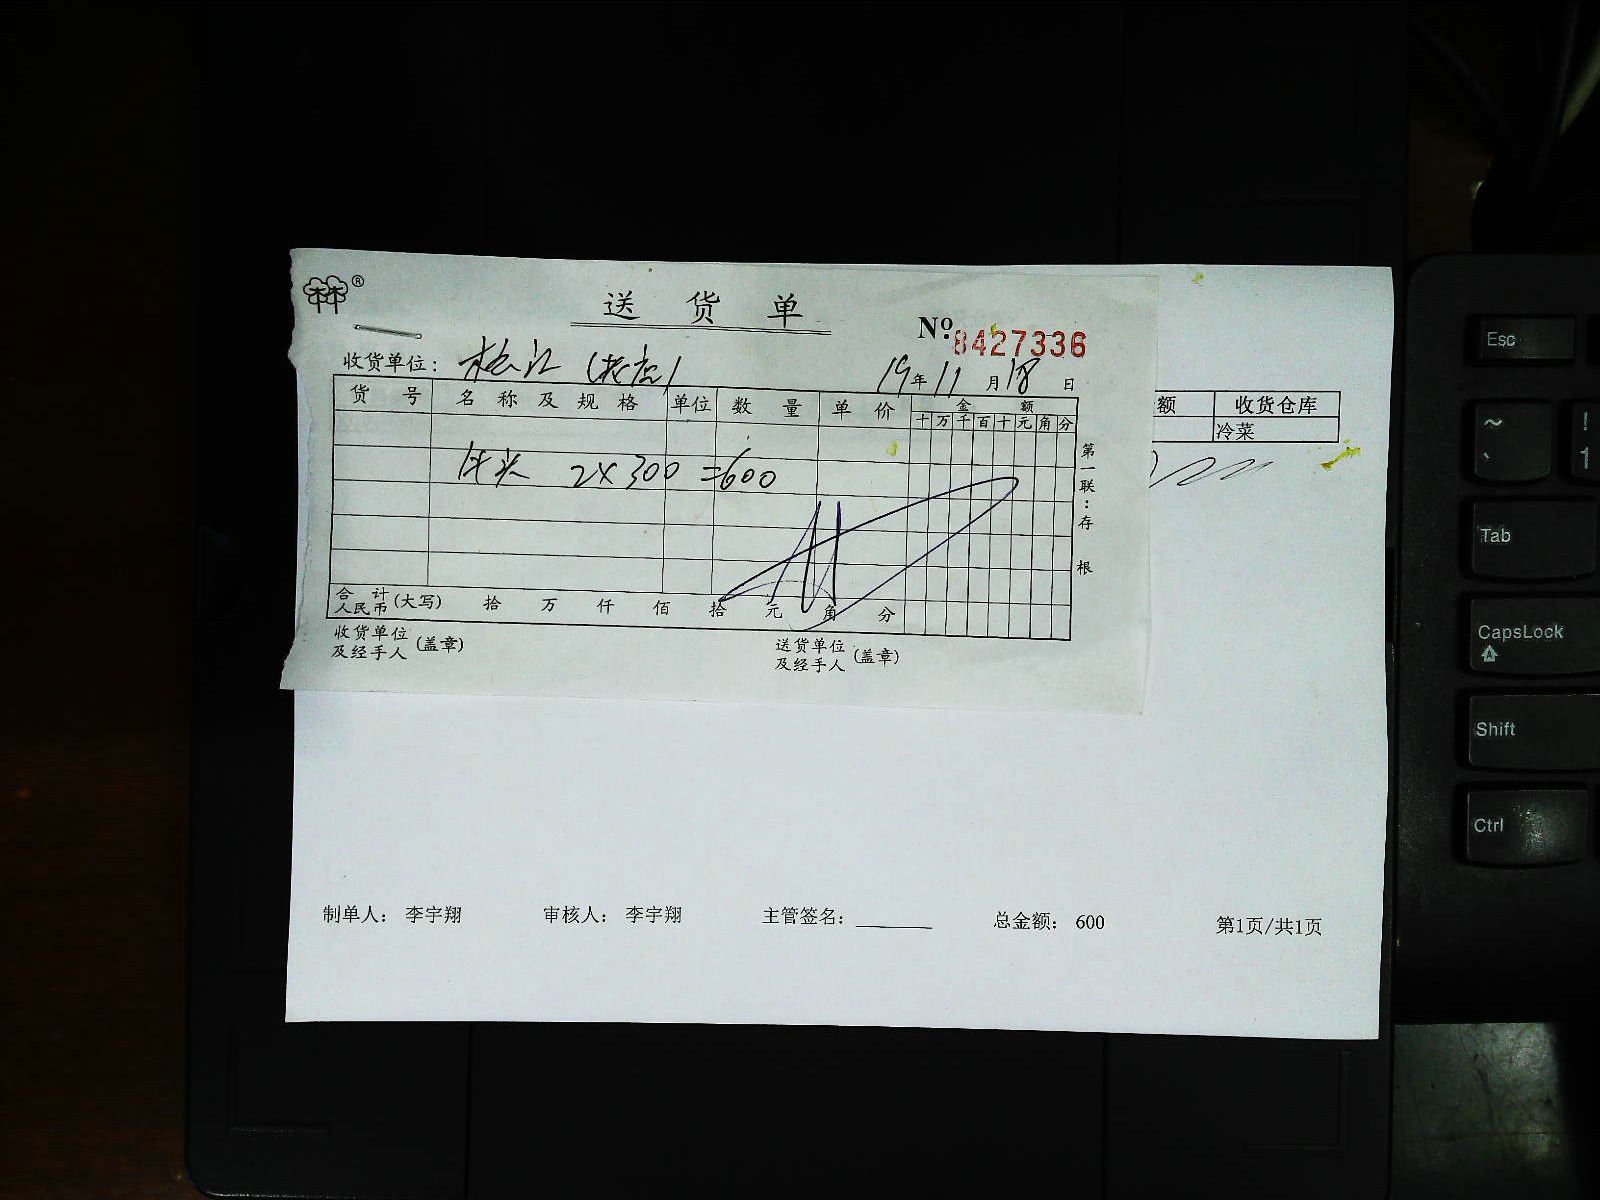 ®
送货单
№ 8427336
收货单位: 松江 (老店)
19年11月18日
货号 名称及规格 单位 数量 单价 金额
十万千百十元角分
牛头 2×300=600
第一联:存根
合计人民币(大写) 拾 万 仟 佰 拾 元 角 分
收货单位及经手人(盖章) 送货单位及经手人(盖章)
额 收货仓库
冷菜
制单人: 李宇翔 审核人: 李宇翔 主管签名: 总金额: 600 第1页/共1页
Esc
~
`
!
1
Tab
CapsLock
Shift
Ctrl